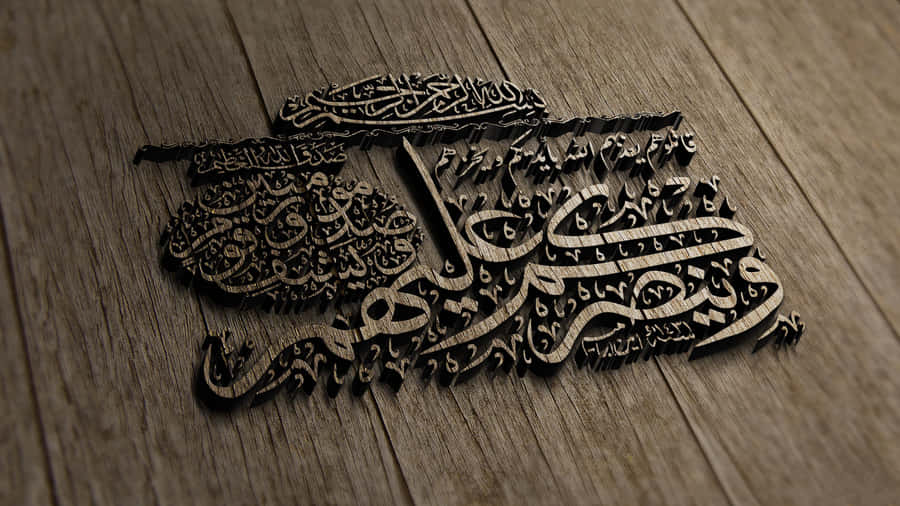 بسم الله الرحمن الرحيم
قاتلوهم يعذبهم الله بأيديكم ويخزهم
وينصركم عليهم
ويشف صدور قوم مؤمنين
صدق الله العظيم